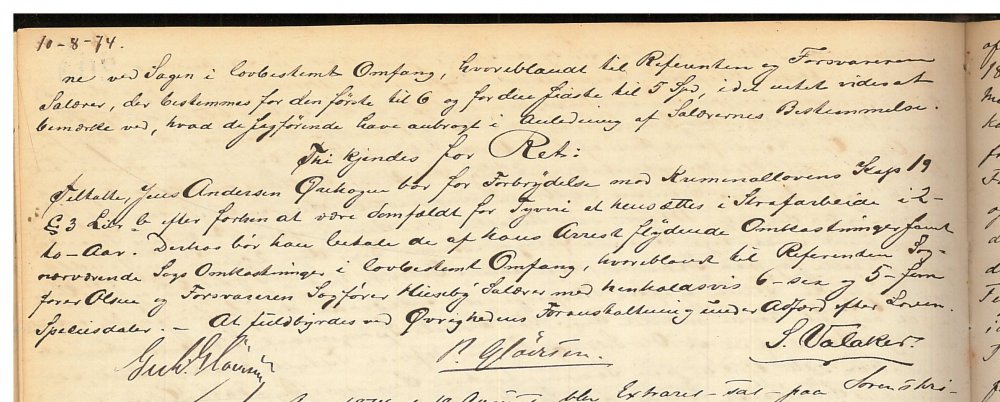 10-8-74.
ne ved Sagen i lovbestemt Omfang, hvoriblandt til Referenten og Forsvareren
Salærer, der bestemmes for den første til 6 og for den sidste til 5 Spd, idet intet vides at
bemærke ved, hvad de Sagførende have anbragt i Anledning af Salærernes Bestemmelse.
Thi kjendes for Ret:
Tiltalte, Jens Andersen bør for Forbrydelse mod Kriminallovens Kap 19
§ 3 Litr. b efter forhen at være domfældt for Tyvri at hensættes i Strafarbeide i 2-
to-Aar. Derhos bør han betale de af hans Arrest flydende Omkostninger samt
nærværende Sags Omkostninger i lovbestemt Omfang, hvoriblandt til Referenten Sag-
fører Olsen og Forsvareren Sagfører Salærer med henholdsvis 6-sex og 5-fem
Speciesdaler. - At fuldbyrdes ved Øvrighedens Foranstaltning under Adfærd efter Loven.
S. Valaker.
Gløersen.
blev Extraret - sat - paa Sorenskri-